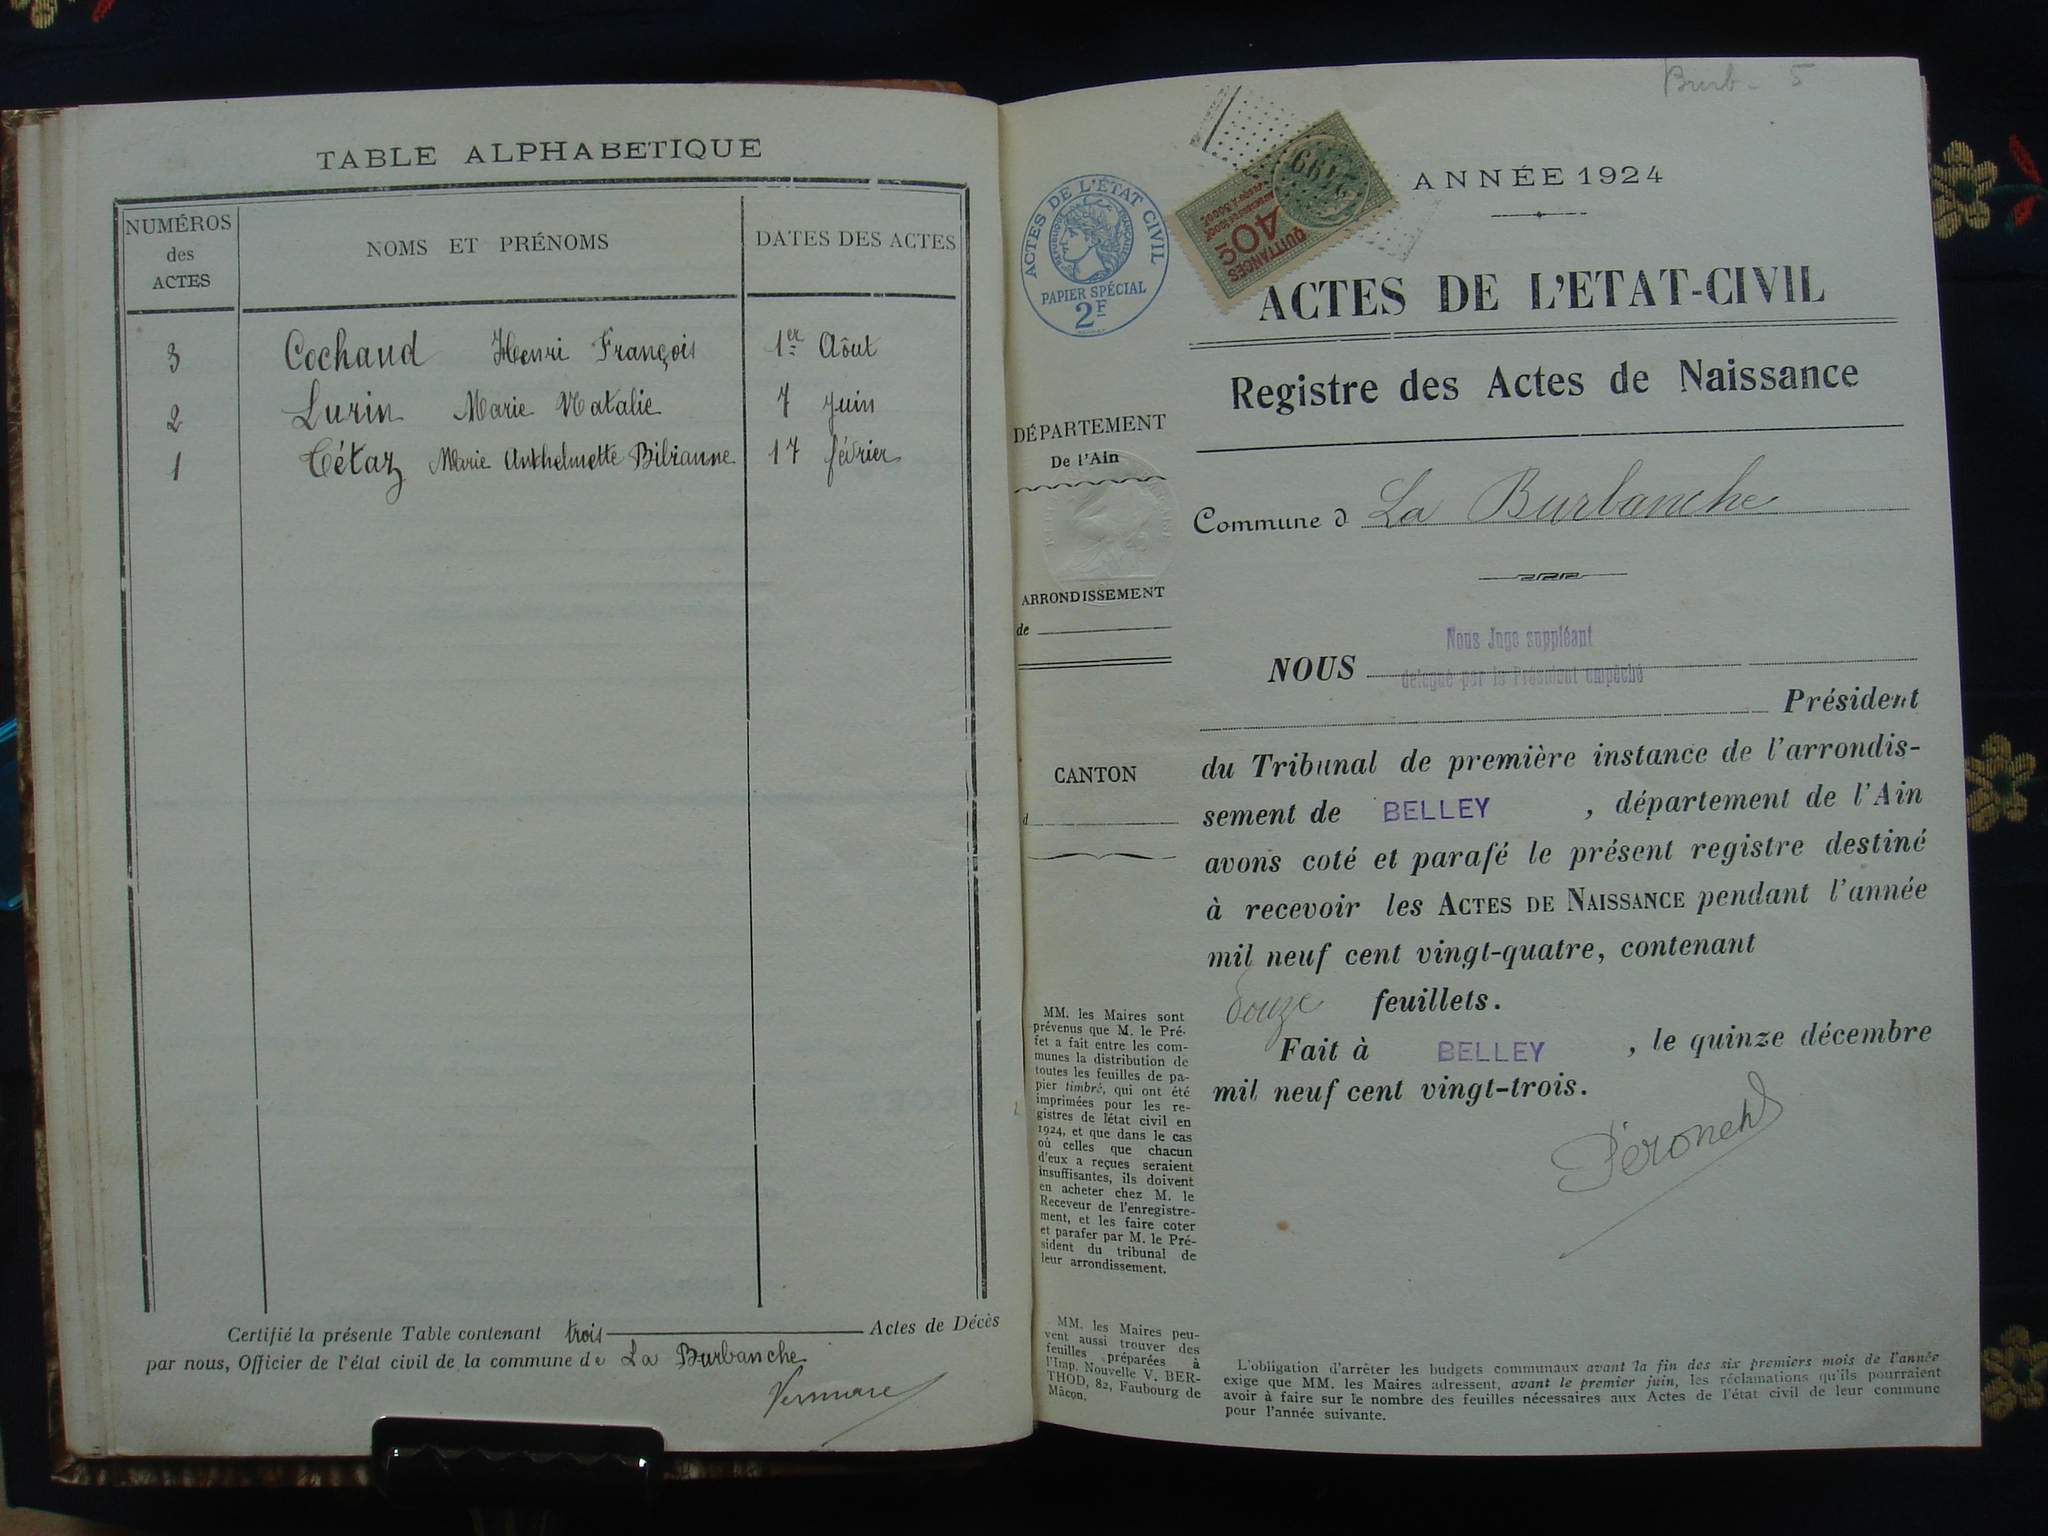 TABLE ALPHABETIQUE
NUMÉROS
des
ACTES
NOMS ET PRÉNOMS
DATES DES ACTES
3 Cochaud Henri François 1er Aôut
2 Lurin Marie Natalie 7 Juin
1 Tétaz Marie Anthelmette Bibianne 17 février
Certifié la présente Table contenant trois Actes de Décès
par nous, Officier de l'état civil de la commune de La Burbanche
Burb - 5
ANNÉE 1924
ACTES DE L'ÉTAT CIVIL
RÉPUBLIQUE FRANÇAISE
PAPIER SPÉCIAL
2F
QUITTANCES
40c
ACTES DE L'ETAT-CIVIL
Registre des Actes de Naissance
DÉPARTEMENT
De l'Ain
Commune d La Burbanche
ARRONDISSEMENT
de
CANTON
d
Nous Juge suppléant
NOUS délégué par le Président empêché
Président
du Tribunal de première instance de l'arrondis-
sement de BELLEY , département de l'Ain
avons coté et parafé le présent registre destiné
à recevoir les ACTES DE NAISSANCE pendant l'année
mil neuf cent vingt-quatre, contenant
douze feuillets.
Fait à BELLEY , le quinze décembre
mil neuf cent vingt-trois.
MM. les Maires sont
prévenus que M. le Pré-
fet a fait entre les com-
munes la distribution de
toutes les feuilles de pa-
pier timbré, qui ont été
imprimées pour les re-
gistres de létat civil en
1924, et que dans le cas
où celles que chacun
d'eux a reçues seraient
insuffisantes, ils doivent
en acheter chez M. le
Receveur de l'enregistre-
ment, et les faire coter
et parafer par M. le Pré-
sident du tribunal de
leur arrondissement.
MM. les Maires peu-
vent aussi trouver des
feuilles préparées à
l'Imp. Nouvelle V. BER-
THOD, 82, Faubourg de
Mâcon.
L'obligation d'arrêter les budgets communaux avant la fin des six premiers mois de l'année
exige que MM. les Maires adressent, avant le premier juin, les réclamations qu'ils pourraient
avoir à faire sur le nombre des feuilles nécessaires aux Actes de l'état civil de leur commune
pour l'année suivante.